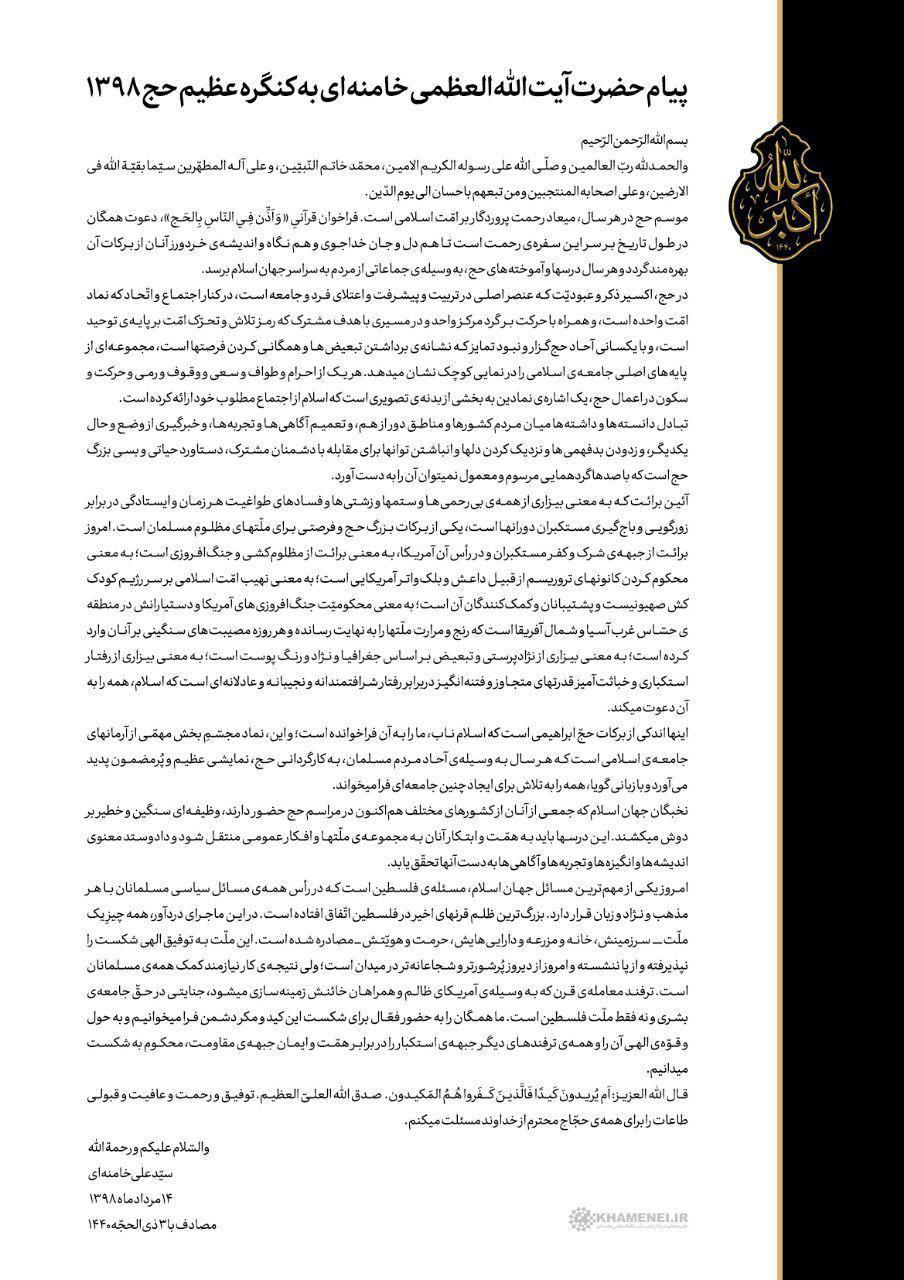 پیام حضرت آیت الله العظمی خامنه‌ای به کنگره عظیم حج ۱۳۹۸
بسم الله الرّحمن الرّحیم
والحمدلله ربّ العالمین و صلّی الله علی رسوله الکریم الامین، محمّد خاتم النّبیّین، و علی آله المطهّرین سیّما بقیّة الله فی
الارضین، و علی اصحابه المنتجبین و من تبعهم باحسان الی یوم الدّین.
موسم حج در هر سال، میعاد رحمت پروردگار بر امّت اسلامی است. فراخوان قرآنیِ «وَ اَذِّن فِی النّاسِ بِالحَج»، دعوت همگان
در طول تاریخ بر سر این سفره‌ی رحمت است تا هم دل و جان خداجوی و هم نگاه و اندیشه‌ی خردورز آنان از برکات آن
بهره‌مند گردد و هر سال درسها و آموخته‌های حج، به وسیله‌ی جماعاتی از مردم به سراسر جهان اسلام برسد.
در حج، اکسیر ذکر و عبودیّت که عنصر اصلی در تربیت و پیشرفت و اعتلای فرد و جامعه است، در کنار اجتماع و اتّحاد که نماد
امّت واحده است، و همراه با حرکت بر گرد مرکز واحد و در مسیری با هدف مشترک که رمز تلاش و تحرّک امّت بر پایه‌ی توحید
است، و با یکسانی آحاد حج‌گزار و نبود تمایز که نشانه‌ی برداشتن تبعیض‌ها و همگانی کردن فرصتها است، مجموعه‌ای از
پایه‌های اصلی جامعه‌ی اسلامی را در نمایی کوچک نشان میدهد. هر یک از احرام و طواف و سعی و وقوف و رمی و حرکت و
سکون در اعمال حج، یک اشاره‌ی نمادین به بخشی از بدنه‌ی تصویری است که اسلام از اجتماع مطلوب خود ارائه کرده است.
تبادل دانسته‌ها و داشته‌ها میان مردم کشورها و مناطق دور از هم، و تعمیم آگاهی‌ها و تجربه‌ها، و خبرگیری از وضع و حال
یکدیگر، و زدودن بدفهمی‌ها و نزدیک کردن دلها و انباشتن توانها برای مقابله با دشمنان مشترک، دستاورد حیاتی و بسی بزرگ
حج است که با صدها گردهمایی مرسوم و معمول نمیتوان آن را به دست آورد.
آئین برائت که به معنی بیزاری از همه‌ی بی‌رحمی‌ها و ستمها و زشتی‌ها و فسادهای طواغیت هر زمان و ایستادگی در برابر
زورگویی و باج‌گیری مستکبران دورانها است، یکی از برکات بزرگ حج و فرصتی برای ملّتهای مظلوم مسلمان است. امروز
برائت از جبهه‌ی شرک و کفر مستکبران و در رأس آن آمریکا، به معنی برائت از مظلوم‌کشی و جنگ‌افروزی است؛ به معنی
محکوم کردن کانونهای تروریسم از قبیل داعش و بلک‌واتر آمریکایی است؛ به معنی نهیب امّت اسلامی بر سر رژیم کودک
کش صهیونیست و پشتیبانان و کمک‌کنندگان آن است؛ به معنی محکومیّت جنگ‌افروزی‌های آمریکا و دستیارانش در منطقه
ی حسّاس غرب آسیا و شمال آفریقا است که رنج و مرارت ملّتها را به نهایت رسانده و هر روزه مصیبت‌های سنگینی بر آنان وارد
کرده است؛ به معنی بیزاری از نژادپرستی و تبعیض بر اساس جغرافیا و نژاد و رنگ پوست است؛ به معنی بیزاری از رفتار
استکباری و خباثت‌آمیز قدرتهای متجاوز و فتنه‌انگیز در برابر رفتار شرافتمندانه و نجیبانه و عادلانه‌ای است که اسلام، همه را به
آن دعوت میکند.
اینها اندکی از برکات حجّ ابراهیمی است که اسلام ناب، ما را به آن فراخوانده است؛ و این، نماد مجسّم بخش مهمّی از آرمانهای
جامعه‌ی اسلامی است که هر سال به وسیله‌ی آحاد مردم مسلمان، به کارگردانی حج، نمایشی عظیم و پُرمضمون پدید
می‌آورد و با زبانی گویا، همه را به تلاش برای ایجاد چنین جامعه‌ای فرامیخواند.
نخبگان جهان اسلام که جمعی از آنان از کشورهای مختلف هم‌اکنون در مراسم حج حضور دارند، وظیفه‌ای سنگین و خطیر بر
دوش میکشند. این درسها باید به همّت و ابتکار آنان به مجموعه‌ی ملّتها و افکار عمومی منتقل شود و دادوستد معنوی
اندیشه‌ها و انگیزه‌ها و تجربه‌ها و آگاهی‌ها به دست آنها تحقّق یابد.
امروز یکی از مهم‌ترین مسائل جهان اسلام، مسئله‌ی فلسطین است که در رأس همه‌ی مسائل سیاسی مسلمانان با هر
مذهب و نژاد و زبان قرار دارد. بزرگ‌ترین ظلم قرنهای اخیر در فلسطین اتّفاق افتاده است. در این ماجرای دردآور، همه چیز یک
ملّت ــ سرزمینش، خانه و مزرعه و دارایی‌هایش، حرمت و هویّتش ــ مصادره شده است. این ملّت به توفیق الهی شکست را
نپذیرفته و از پا ننشسته و امروز از دیروز پُرشورتر و شجاعانه‌تر در میدان است؛ ولی نتیجه‌ی کار نیازمند کمک همه‌ی مسلمانان
است. ترفند معامله‌ی قرن که به وسیله‌ی آمریکای ظالم و همراهان خائنش زمینه‌سازی میشود، جنایتی در حقّ جامعه‌ی
بشری و نه فقط ملّت فلسطین است. ما همگان را به حضور فعّال برای شکست این کید و مکر دشمن فرا میخوانیم و به حول
و قوّه‌ی الهی آن را و همه‌ی ترفندهای دیگر جبهه‌ی استکبار را در برابر همّت و ایمان جبهه‌ی مقاومت، محکوم به شکست
میدانیم.
قال الله العزیز: اَم یُریدونَ کَیدًا فَالَّذینَ کَفَروا هُمُ المَکیدون. صدق الله العلیّ العظیم. توفیق و رحمت و عافیت و قبولی
طاعات را برای همه‌ی حجّاج محترم از خداوند مسئلت میکنم.
والسّلام علیکم و رحمة الله
سیّدعلی خامنه‌ای
۱۴ مرداد ماه ۱۳۹۸
مصادف با ۳ ذی الحجّه ۱۴۴۰
الله اکبر
۱۴۴۰
KHAMENEI.IR